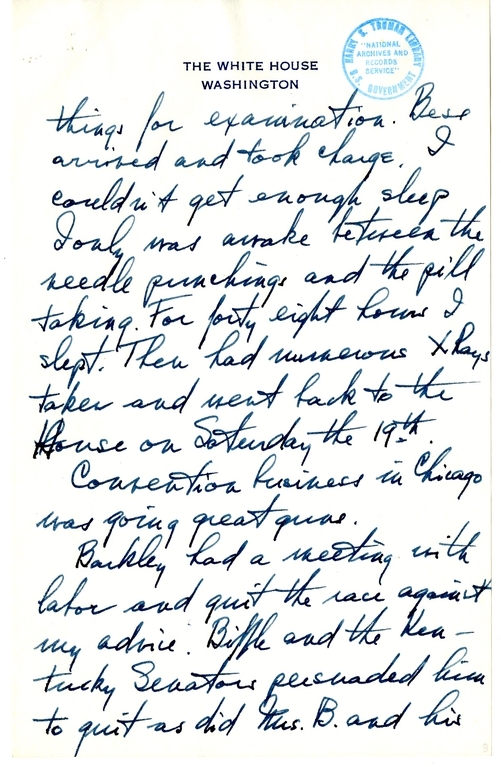 HARRY S. TRUMAN LIBRARY
"NATIONAL
ARCHIVES AND
RECORDS
SERVICE"
U.S. GOVERNMENT
THE WHITE HOUSE
WASHINGTON
things for examination. Bess
arrived and took charge. I
couldn't get enough sleep
I only was awake between the
needle punchings and the pill
taking. For forty eight hours I
slept. Then had numerous X Rays
taken and went back to the
House on Saturday the 19th.
Convention business in Chicago
was going great guns.
Barkley had a meeting with
labor and quit the race against
my advice. Biffle and the Ken-
tucky Senators persuaded him
to quit as did Mrs. B. and his